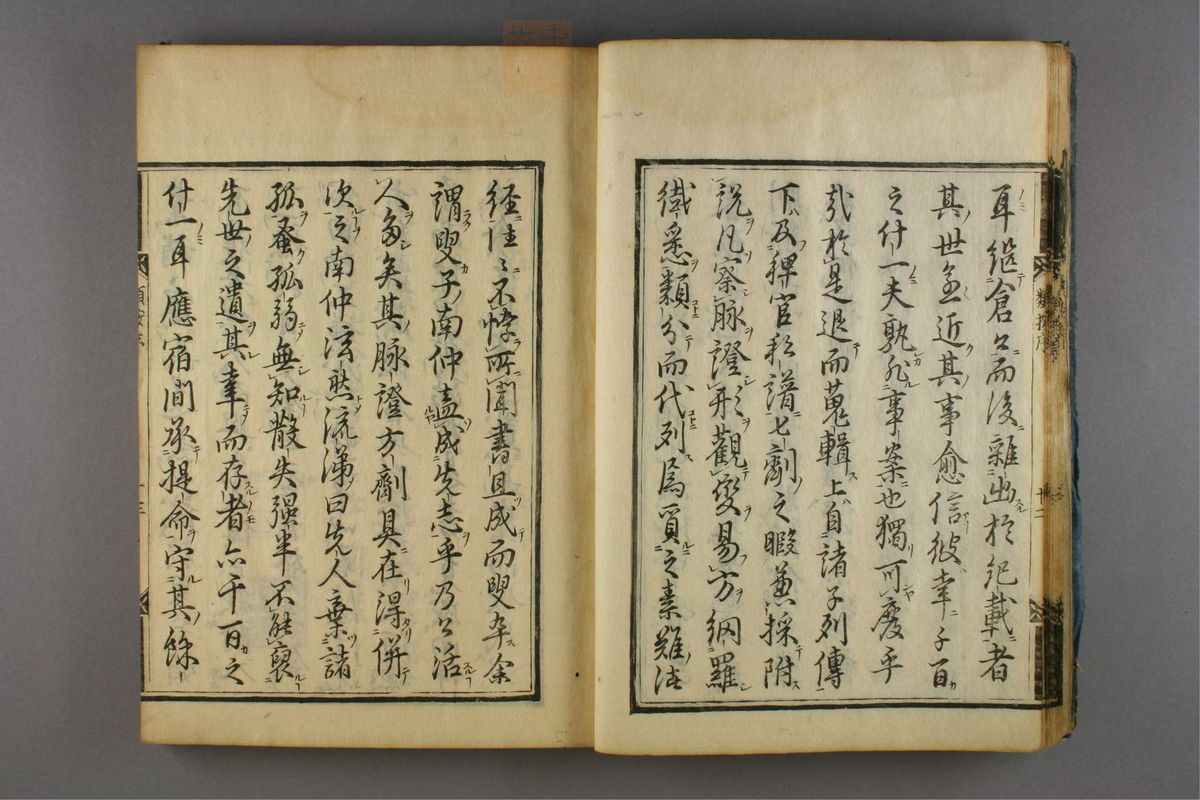 耳繼倉公而後雜出於紀載者
其世至近其事愈信彼幸千百
之什一夫孰非事案也獨可廢乎
哉於是退而蒐輯上自諸子列傳
下及稗官私譜七劑之暇兼採附
說凡察脉證形觀變易方網羅
纖悉類分而代列焉質之素難
経往〻不悖所聞書且成而叟卒余
謂叟子南仲盍成先志乎乃公活
人多矣其脉證方劑具在得併
次之南仲泫然流涕曰先人棄諸
孤蚤孤弱無知散失强半不能裒
先世之遺其幸而存者亦千百之
什一耳應宿間承提命守其餘